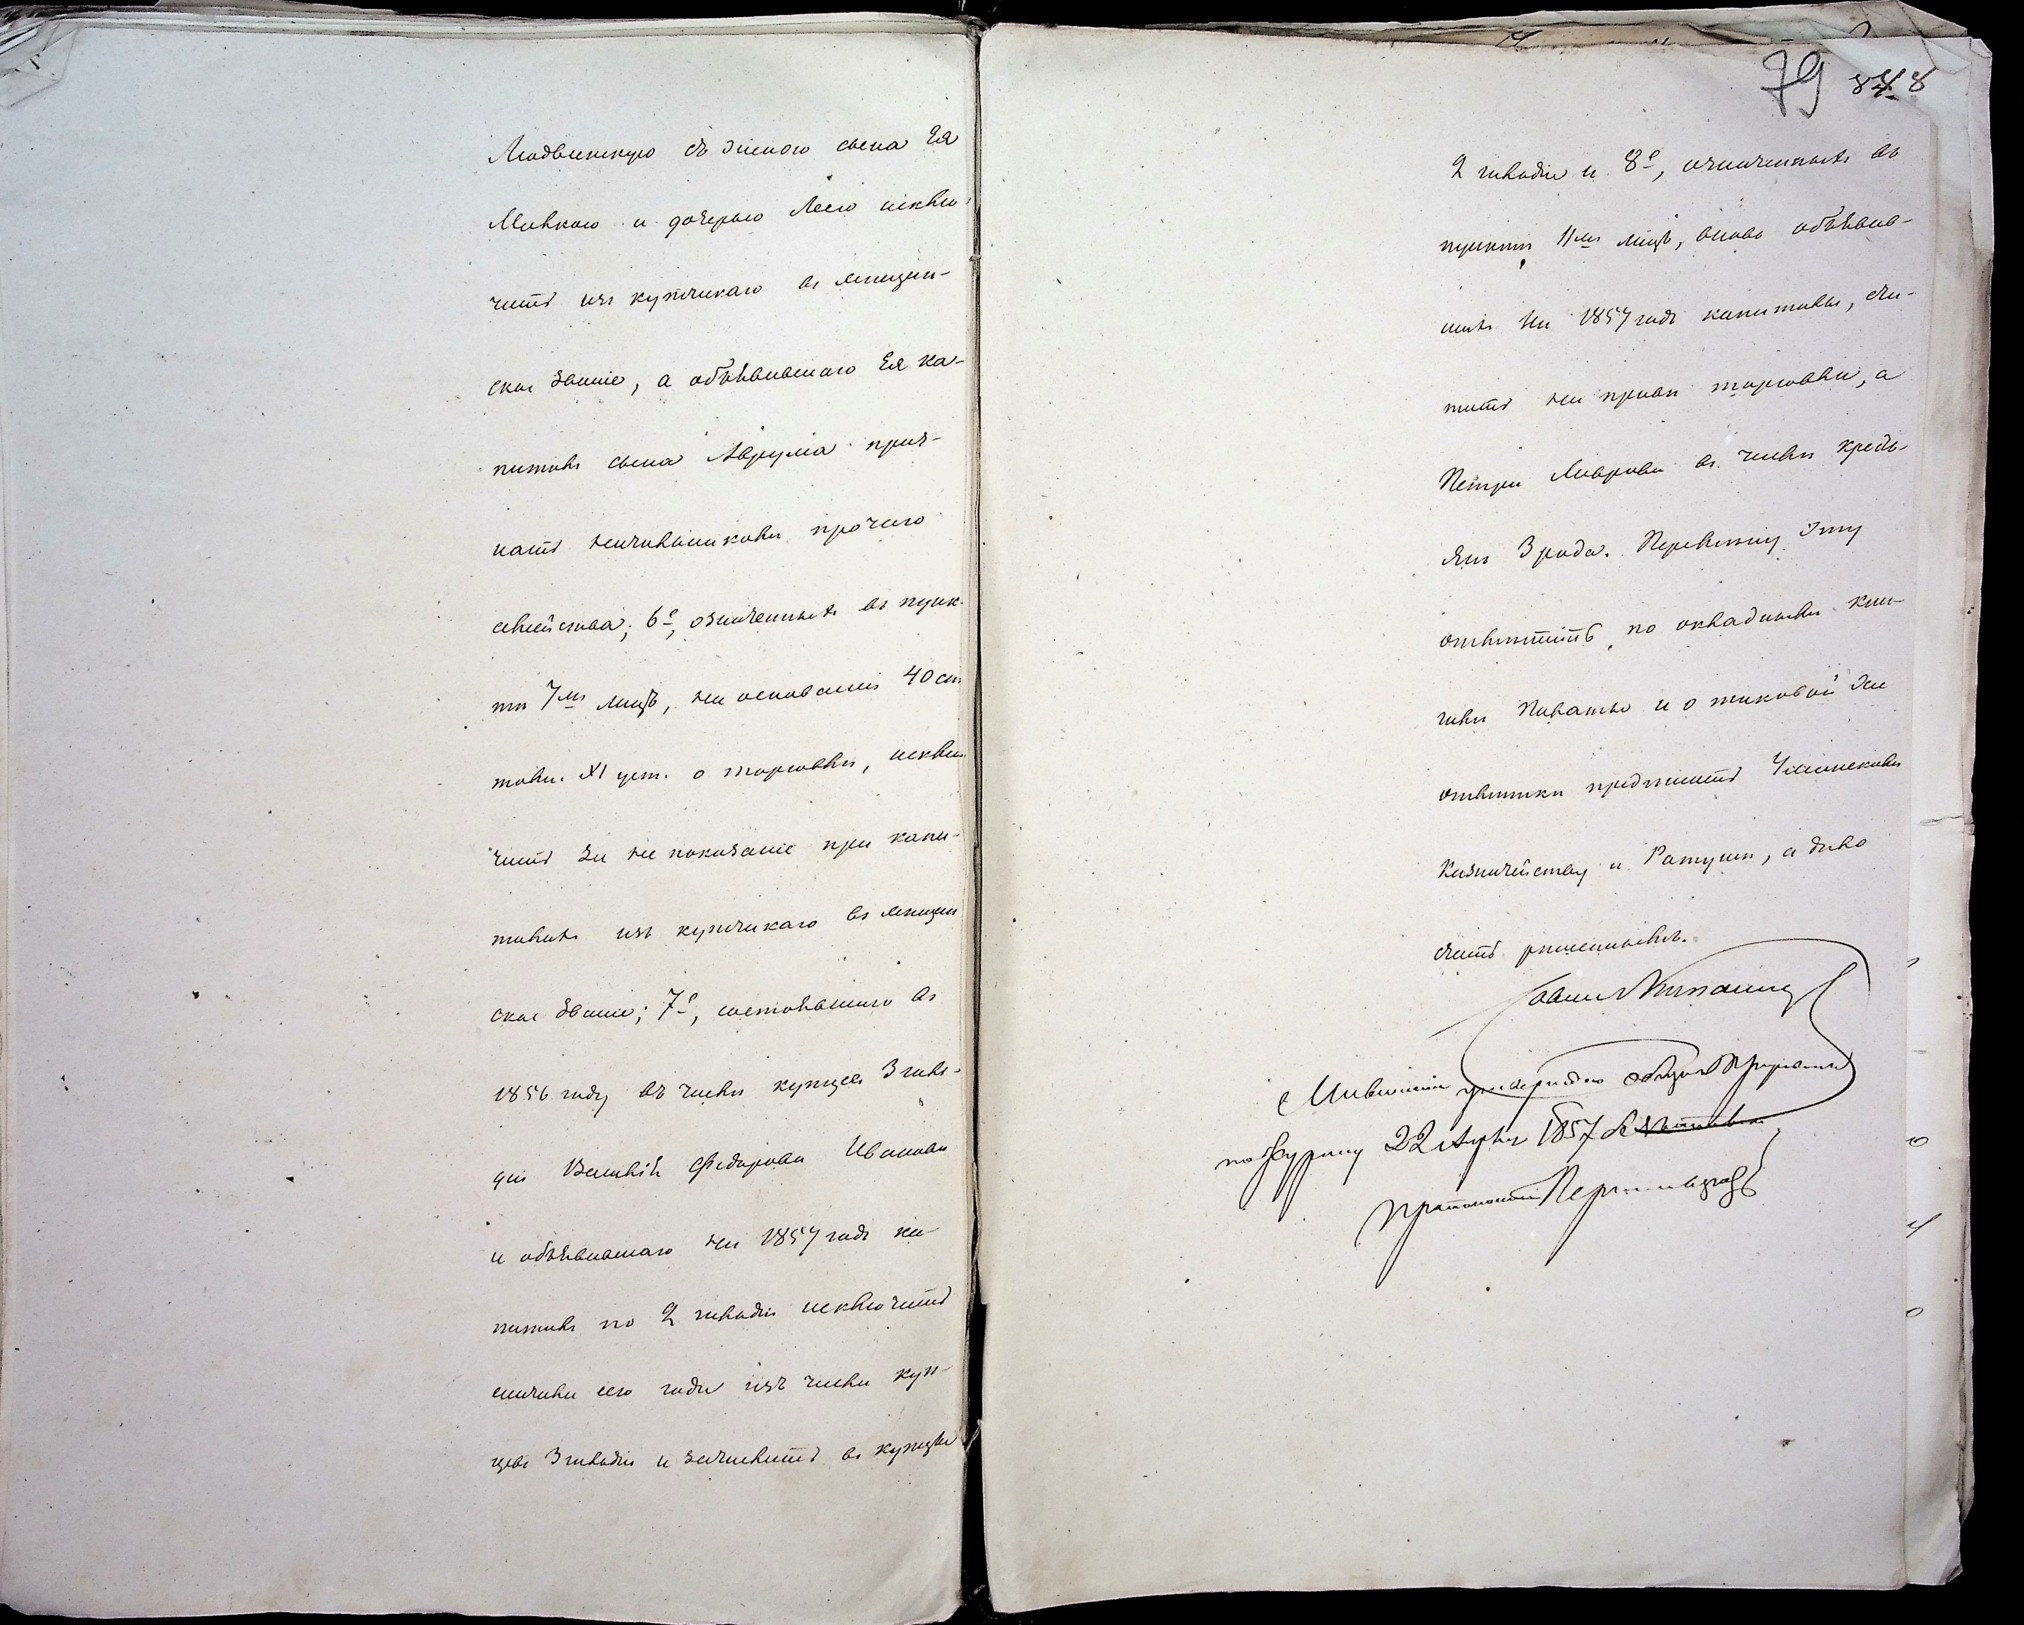 Людвинскую съ женою сына Ея
Мовкою и дочерью Леею исклю-
чить изъ купечскаго въ мещан-
ское званіе, а объявившаго Ея ка-
питалъ сына Аврума приз-
нать начальникомъ прочаго
семейства; 6е, означенныхъ въ пунк-
тѣ 7мъ лицъ, на основаніи 40 ст.
толк. XI уст. о торговлѣ, исклю-
чить за не показаніе при капи-
талахъ изъ купечскаго въ мещан
ское званіе; 7е, состоявшаго въ
1856 году въ числѣ купцовъ 3 гиль-
діи Василія Федорова Иванова
и объявившаго на 1857 годъ ка-
питалъ по 2 гильдіи исключить
сначала сего года изъ числа куп-
цовъ 3 гильдіи и зачислить въ купцы
79 848
2 гильдіи и 8е, означенныхъ въ
пунктѣ 11мъ лицъ, вновь объявив-
шихъ на 1857 годъ капиталы, счи-
тать на правѣ торговли, а
Петра Лаврова въ числѣ кресть-
янъ 3 рода. Перемѣну эту
отмѣтить по окладнымъ кни-
гамъ Палаты и о таковой же
отмѣткѣ предписать
Казначейству и Ратушѣ, а дѣло
считать рѣшеннымъ.
по журналу 22 1857